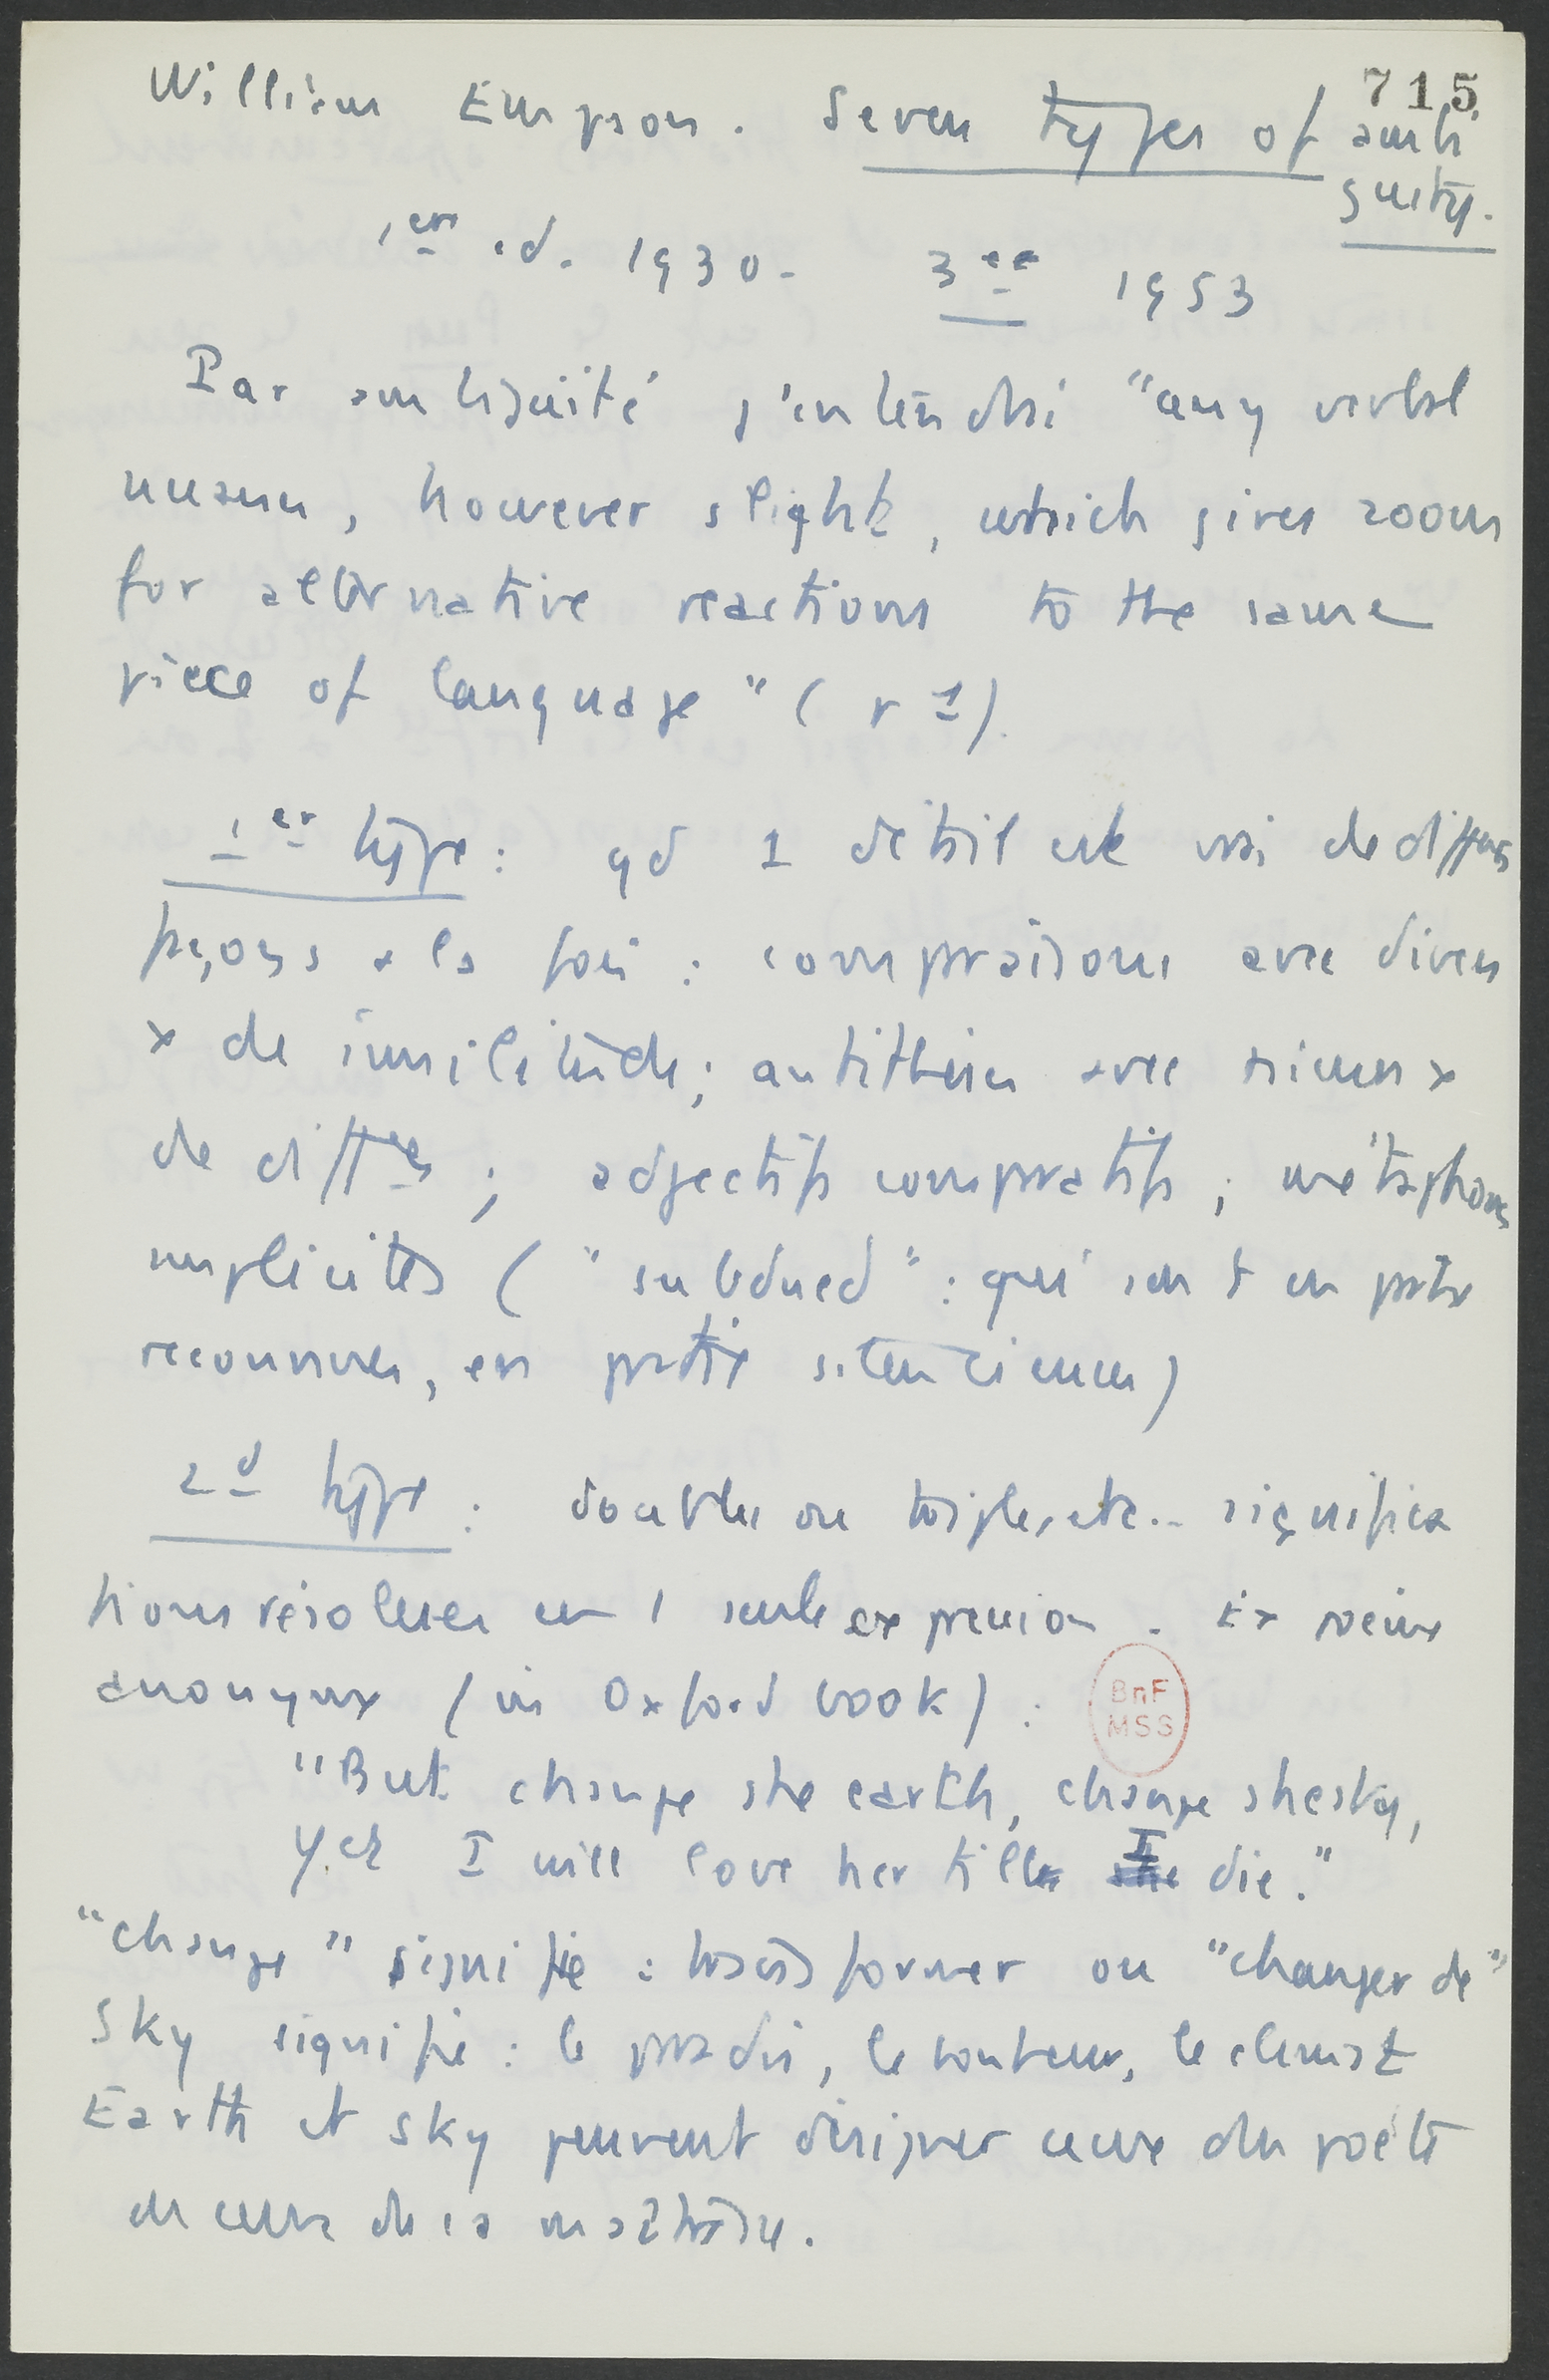 715
William Empson. Seven types of ambi
guity.
1ère éd. 1930. 3ee 1953
Par ambiguïté j'entendrai "any verbal
nuance, however slight, which gives room
for alternative reactions to the same
piece of language" (p 1).
1er type : qd 1 détail est vrai de différ
façons à la fois : comparaisons avec divers
x de similitude ; antithèses avec
de diffces ; adjectifs comparatifs ; métaphores
implicites ("subdued" : qui sont en partie
reconnues, en partie silencieuses)
2d type : doubles ou triples, etc.. significa
tions résolues en 1 seule expression. Ex
anonyme (in Oxford book) :
"But change she earth, change she sky,
Yet I will love her till I die."
"change" signifie : transformer ou "changer de"
Sky signifie : le paradis, le climat
Earth et sky peuvent désigner ceux du poète
ou ceux de sa maîtresse.
BnF
MSS